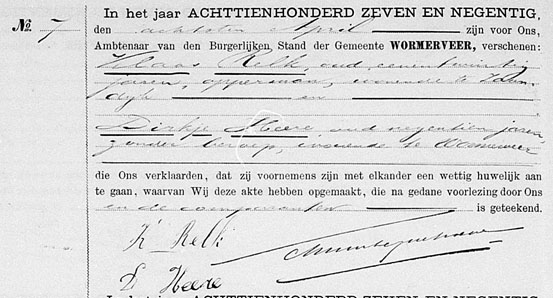 In het jaar ACHTTIENHONDERD ZEVEN EN NEGENTIG,
No. 7 den achtsten April zijn voor Ons,
Ambtenaar van den Burgerlijken Stand der Gemeente WORMERVEER, verschenen:
Klaas Kelk, oud eenentwintig
jaren, opperman, wonende te Zaan
dijk en
Dirkje Heere, oud negentien jaren
zonder beroep, wonende te Wormerveer
die Ons verklaarden, dat zij voornemens zijn met elkander een wettig huwelijk aan
te gaan, waarvan Wij deze akte hebben opgemaakt, die na gedane voorlezing door Ons
en de comparanten is geteekend.
K Kelk
D Heere
In het jaar ACHTTIENHONDERD ZEVEN EN NEGENTIG